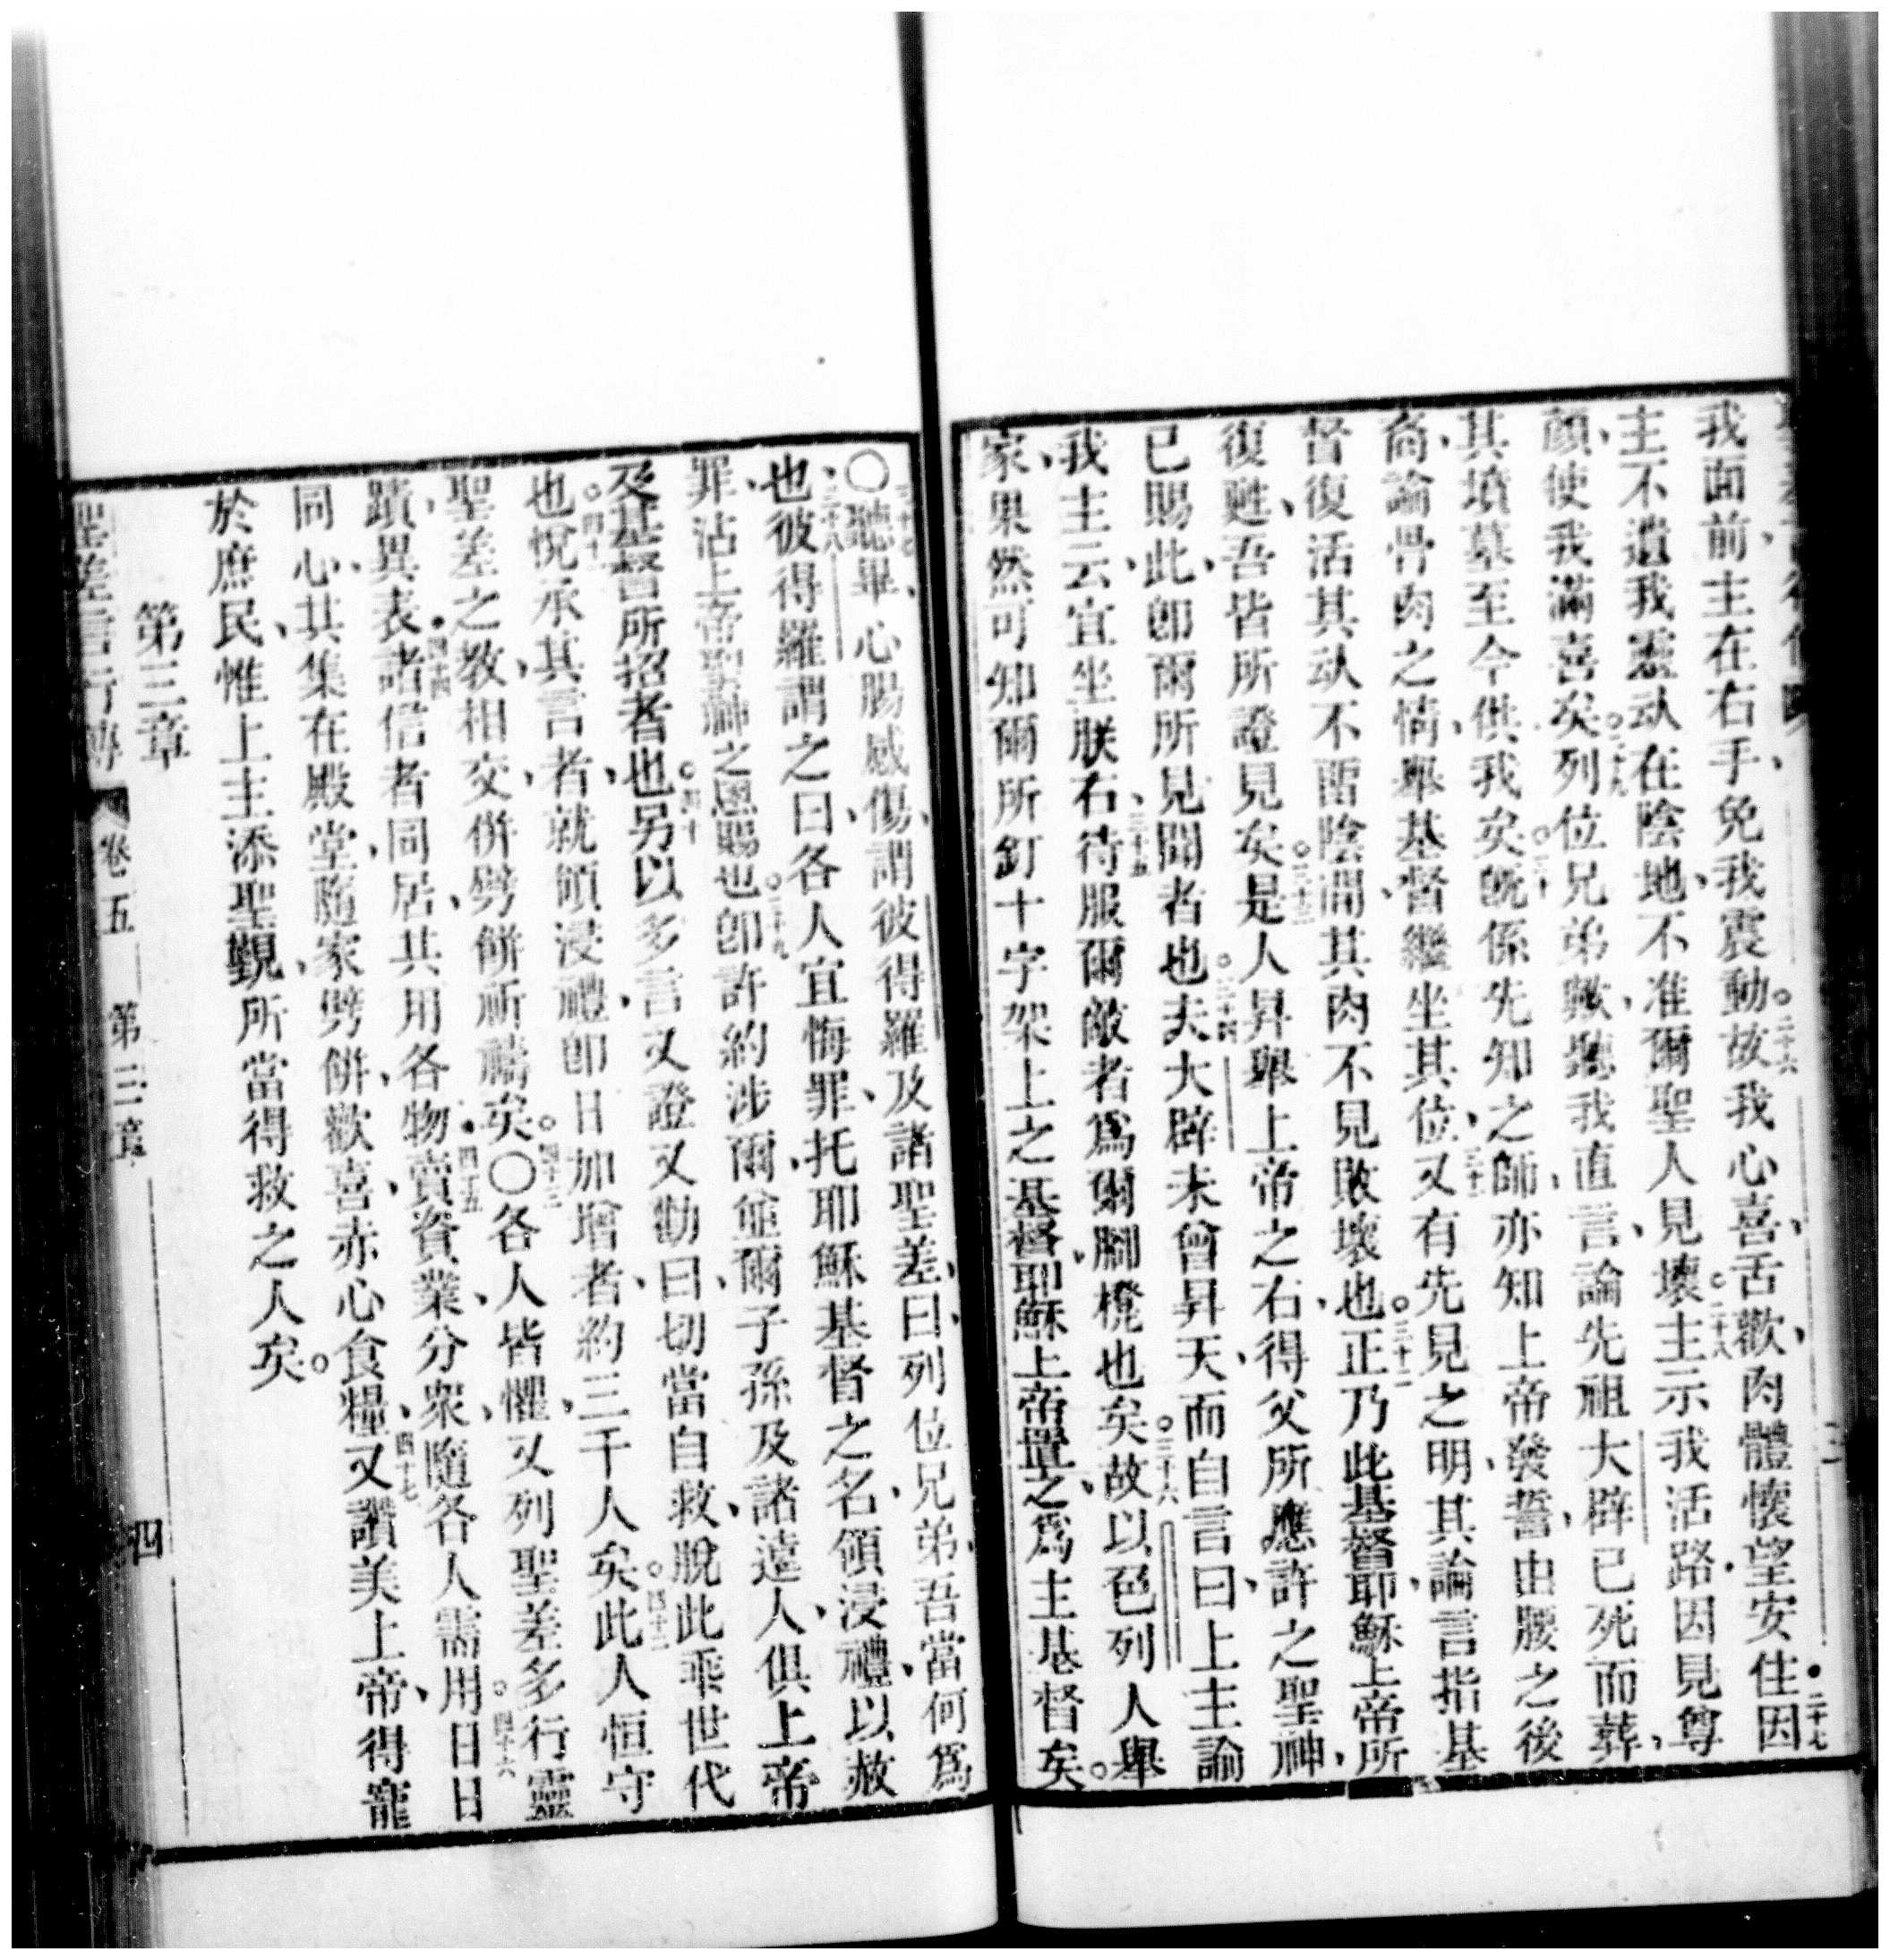 我面前、主在右手、免我震動。二十六故我心喜、舌歡、肉體懷望安住二十七因
主不遺我靈魂在陰地、不准爾聖人見壞。二十八主示我活路．因見尊
顏、使我滿喜矣。二十九列位兄弟歟、聽我直言、論先祖大辟已死而葬、
其墳墓至今供我矣。三十既係先知之師、亦知上帝發誓、由腰之後
裔、論骨肉之情、舉基督繼坐其位、三十一又有先見之明、其論言指基
督復活、其魂不留陰間、其肉不見敗壞也。三十二正乃此基督耶穌、上帝所
復甦、吾皆所證見矣。三十三是人昇舉上帝之右、得父所應許之聖神、
已賜此、卽爾所見聞者也。三十四夫大辟未曾昇天、而自言曰、上主論
我主云、宜坐朕右、三十五待服爾敵者爲爾腳櫈也矣。三十六故以色列人舉
家、果然可知爾所釘十字架上之基督耶穌、上帝置之、爲主基督矣。
〇三十七聽畢、心腸感傷、謂彼得羅及諸聖差、曰、列位兄弟、吾當何爲
也、三十八彼得羅謂之曰、各人宜悔罪、托耶穌基督之名、領浸禮、以赦
罪、沾上帝聖神之恩賜也。三十九卽許約涉爾、並爾子孫及諸遠人、俱上帝
及基督所招者也。四十另以多言又證又勸曰、切當自救、脫此乖世代
也。四十一悅承其言者、就領浸禮、卽日加增者、約三千人矣。四十二此人恒守
聖差之教、相交、併劈餅祈禱矣。四十三〇各人皆懼、又列聖差多行靈
蹟、異表．四十四諸信者同居、共用各物．四十五賣資業、分衆、隨各人需用。四十六日日
同心、其集在殿堂、隨家劈餅、歡喜、赤心食糧、四十七又讚美上帝、得寵
於庶民、惟上主添聖覲、所當得救之人矣。
第三章
聖差言行傳 卷五 第三章 四